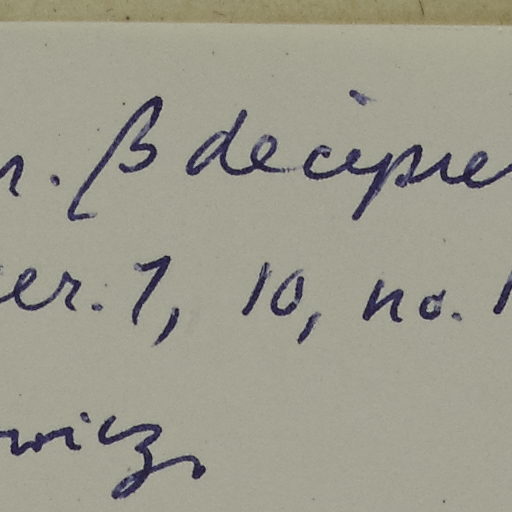 r. β decipie
er. 7, 10, no. 1
wicz,